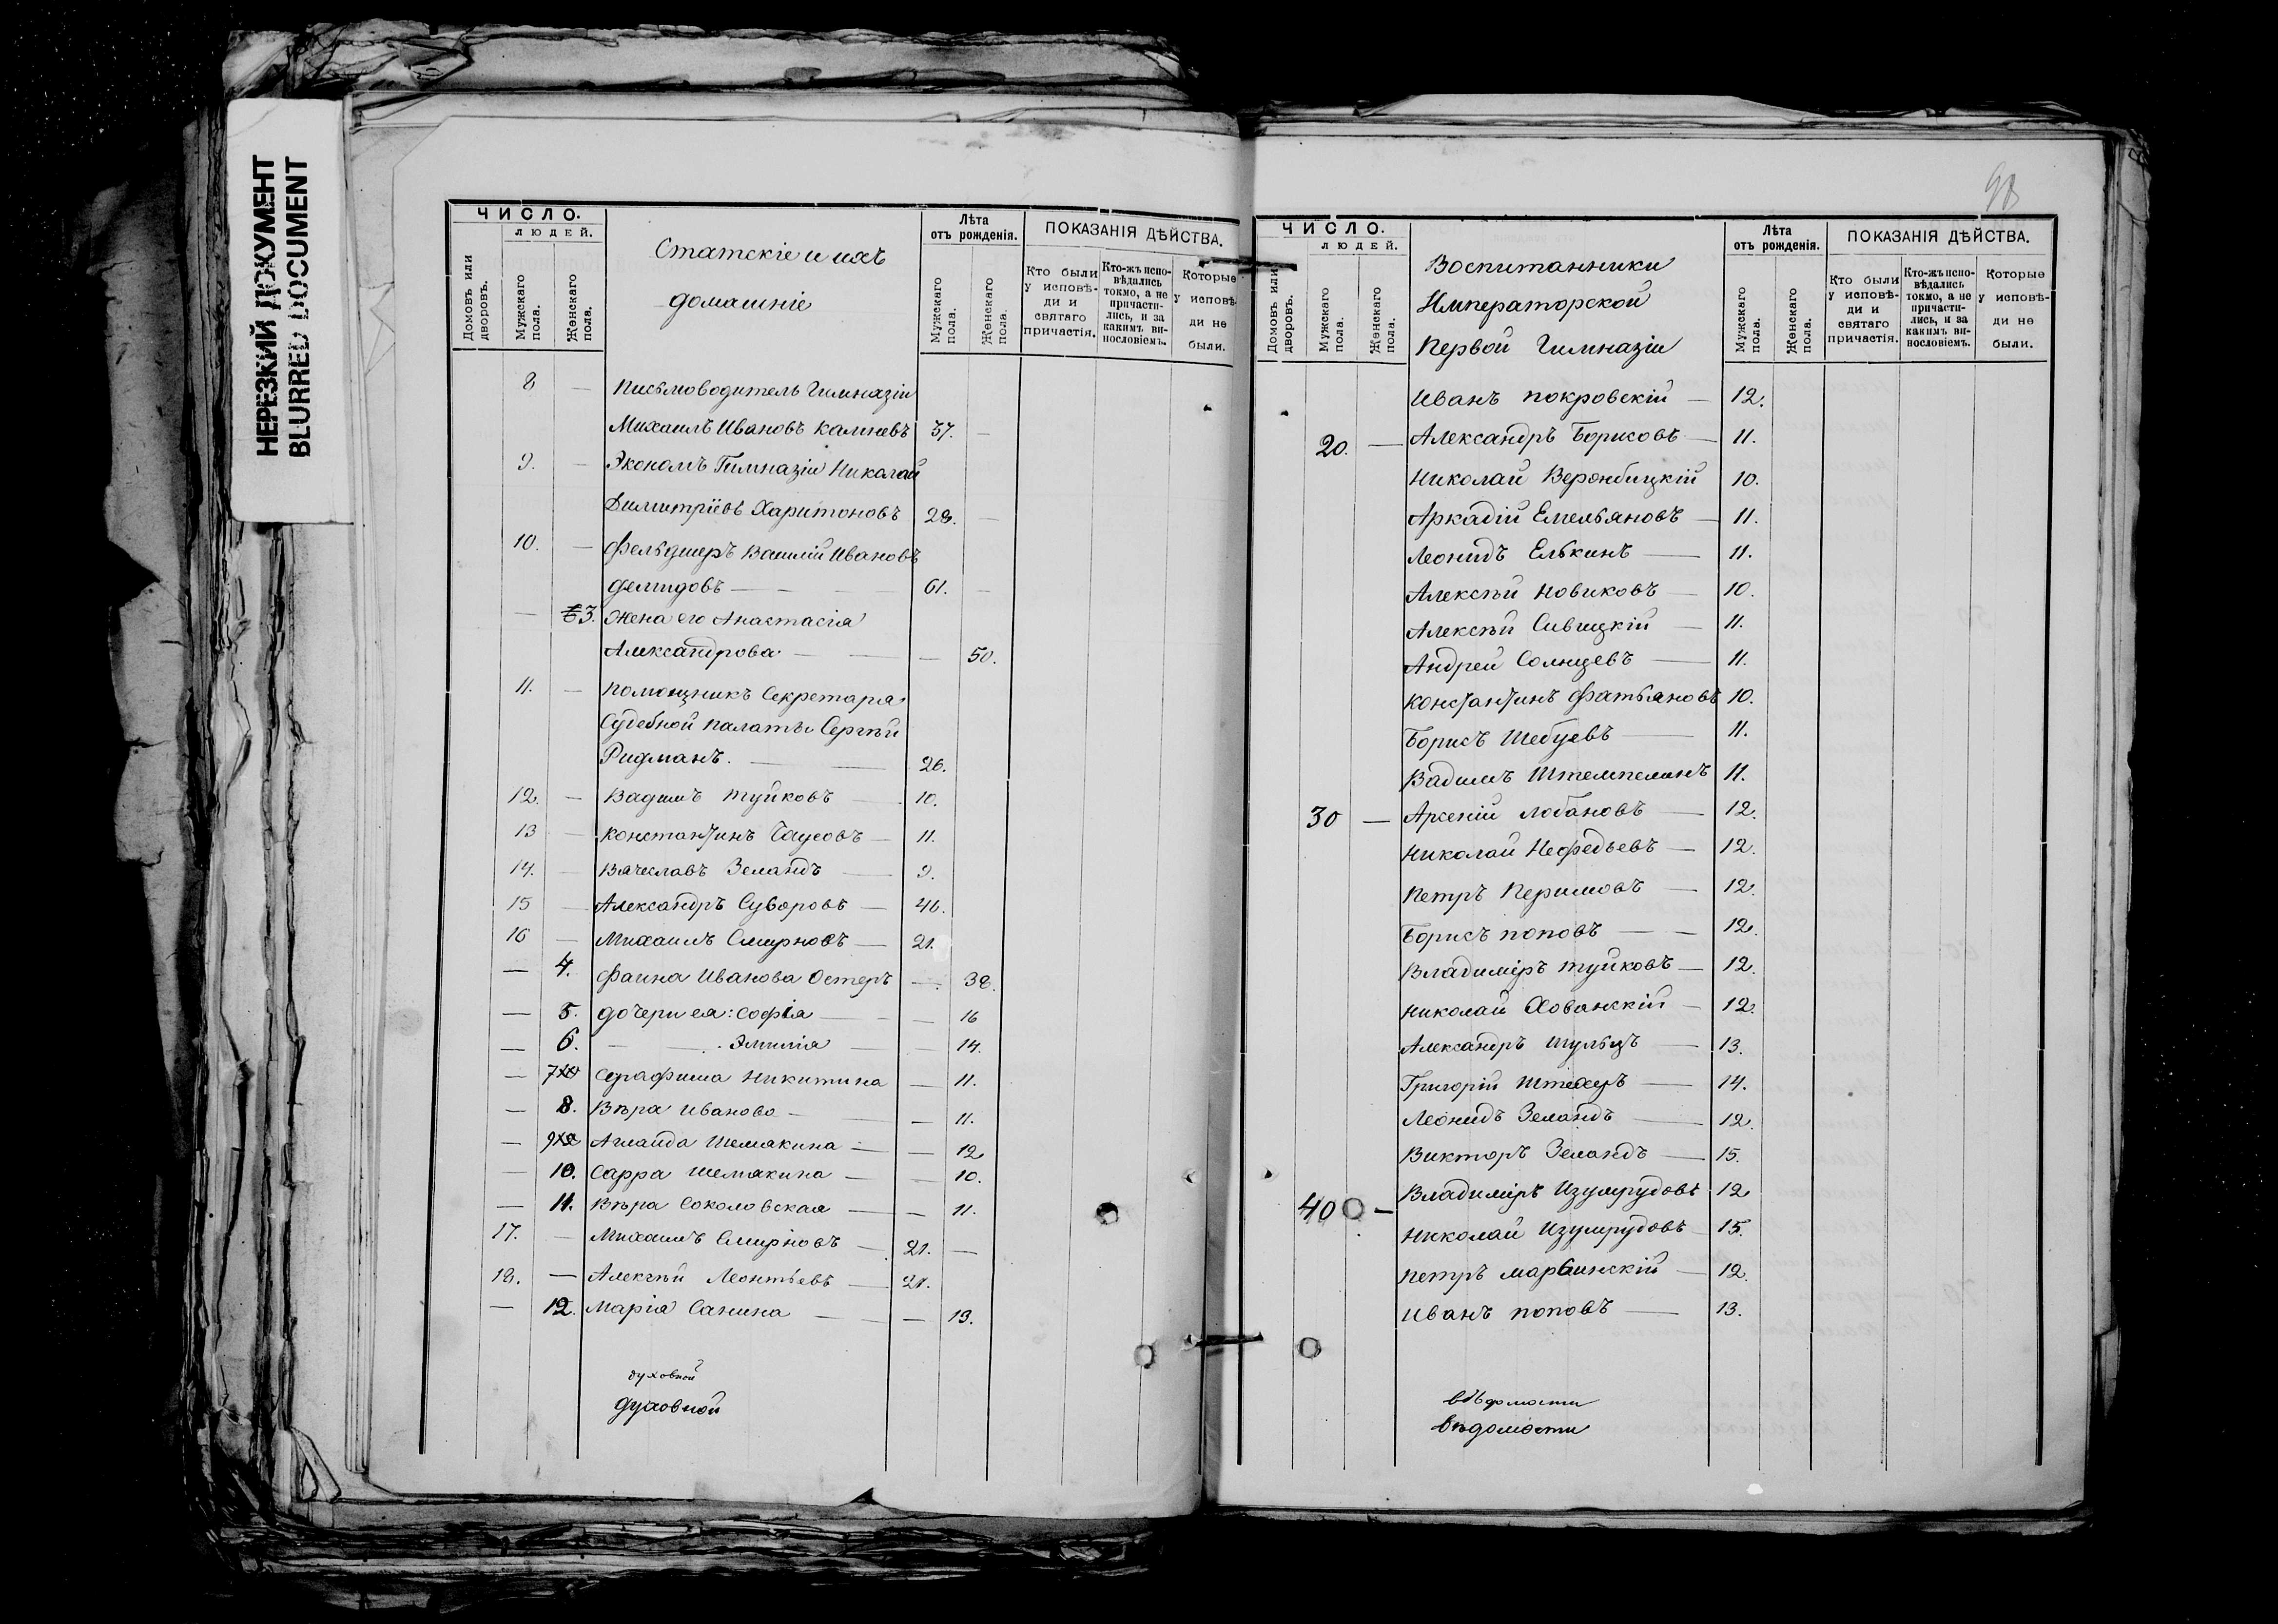 НЕРЕЗКИЙ ДОКУМЕНТ
BLURRED DOCUMENT
ЧИСЛО.
ЛЮДЕЙ.
Домовъ или дворовъ.
Мужскаго пола.
Женскаго пола.
Статскіе и ихъ
домашніе
Лѣта
отъ рожденія.
Мужскаго пола.
Женскаго пола.
ПОКАЗАНІЯ ДѢЙСТВА.
Кто были у исповѣ-ди и святаго причастія.
Кто-жъ испо-вѣдались токмо, а не причасти-лись, и за какимъ ви-нословіемъ.
Которые у исповѣ-ди не были.
8 — Письмоводитель Гимназіи
Михаилъ Ивановъ Камневъ 37. —
9. — Экономъ Гимназіи Николай
Димитріевъ Харитоновъ 28. —
10. — Фельдшеръ Василій Ивановъ
Демидовъ — — 61. —
— 3. Жена его Анастасія
Александрова — — — 50.
11. — Помощникъ Секретаря
Судебной Палаты Сергѣй
Ридманъ. — — 26.
12. — Вадимъ Туйковъ — 10.
13 — Константинъ Баусовъ — 11.
14. — Вячеславъ Земандъ — 9.
15 — Александръ Суворовъ — 46.
16 — Михаилъ Смирновъ — 21.
— 4. Фаина Иванова Остеръ — 38.
— 5. Дочери ея: Софія — — 16
— 6. — — Эмилія — 14.
— 7 Серафима Никитина — 11.
— 8. Вѣра Иваново — — 11.
— 9 Аглаида Шемякина — — 12
— 10. Сарра Шемякина — — 10.
— 11. Вѣра Соколовская — — 11.
17. — Михаилъ Смирновъ — 21. —
18. — Алексѣй Леонтьевъ — 21.
— 12. Марія Санина — — — 13.
духовной
духовной
98
ЧИСЛО.
ЛЮДЕЙ.
Домовъ или дворовъ.
Мужскаго пола.
Женскаго пола.
Воспитанники
Императорской
Первой Гимназіи
Лѣта
отъ рожденія.
Мужскаго пола.
Женскаго пола.
ПОКАЗАНІЯ ДѢЙСТВА.
Кто были у исповѣ-ди и святаго причастія.
Кто-жъ испо-вѣдались токмо, а не причасти-лись, и за какимъ ви-нословіемъ.
Которые у исповѣ-ди не были.
Иванъ Покровскій — 12.
20. — Александръ Борисовъ — 11.
Николай Веронбицкій 10.
Аркадій Емельяновъ — 11.
Леонидъ Елькинъ — 11.
Алексѣй Новиковъ — 10.
Алексѣй Сивицкій — 11.
Андрей Солнцевъ — 11.
Константинъ Фатьяновъ 10.
Борисъ Шебуевъ — 11.
Вадимъ Штемпелинъ 11.
30 — Арсеній Лобановъ — 12.
Николай Нефедьевъ — 12.
Петръ Перимовъ — 12.
Борисъ Поповъ — — 12.
Владиміръ Туйковъ — 12.
Николай Хованскій — 12.
Александръ Шульцъ — 13.
Григорій Штехеръ — 14.
Леонидъ Земандъ — 12.
Викторъ Земандъ — 15.
40 — Владиміръ Изумрудовъ 12
Николай Изумрудовъ 15.
Петръ Марвинскій — 12.
Иванъ Поповъ — 13.
вѣдомости
вѣдомости